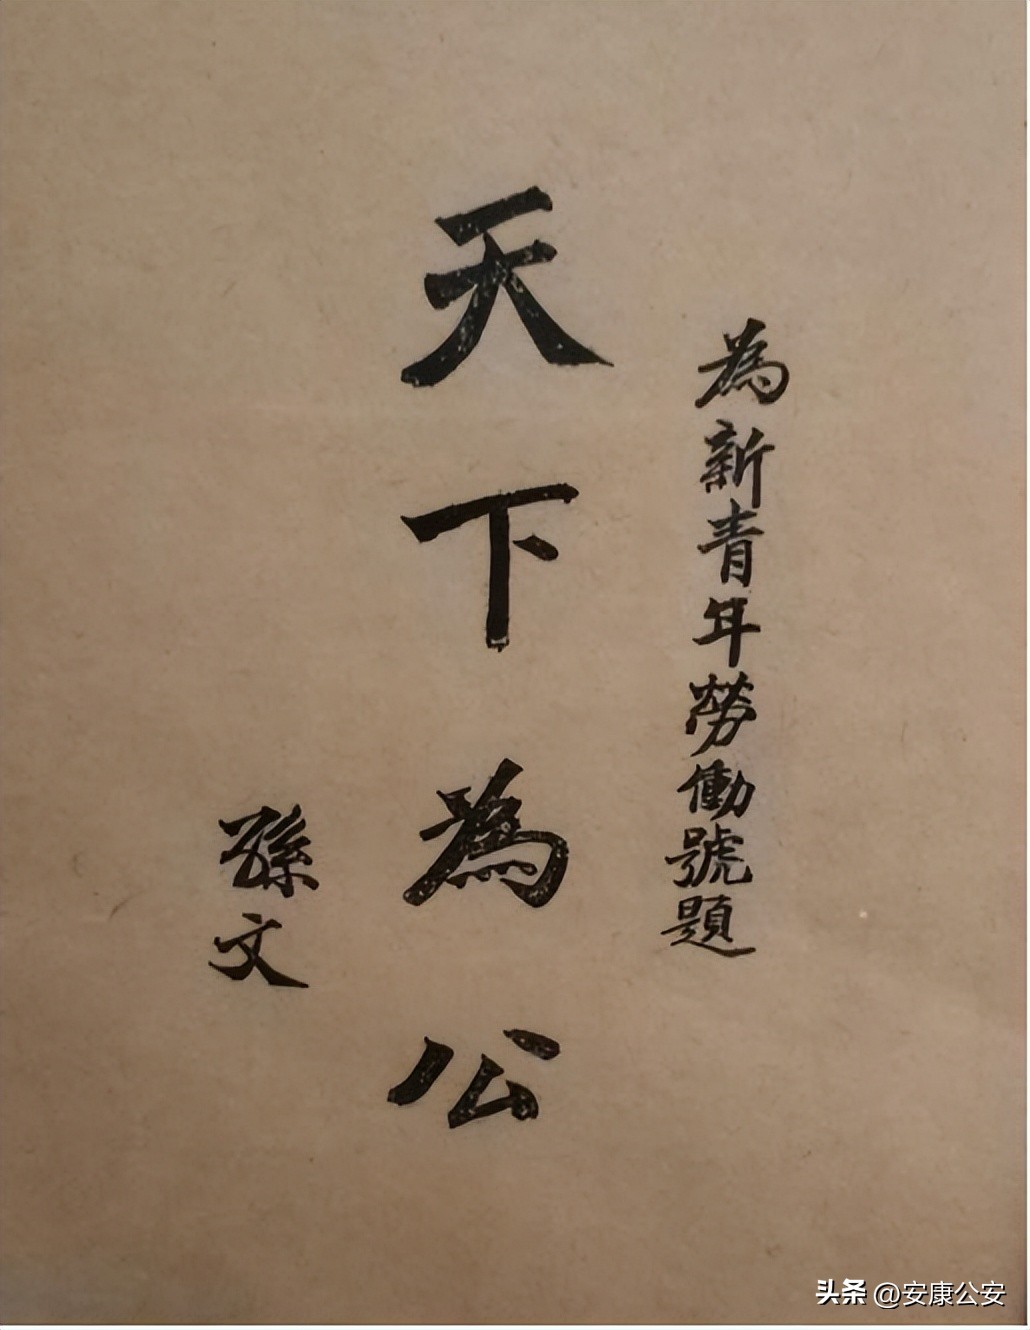 為新青年勞働號題
天下為公
孫文
头条 @安康公安